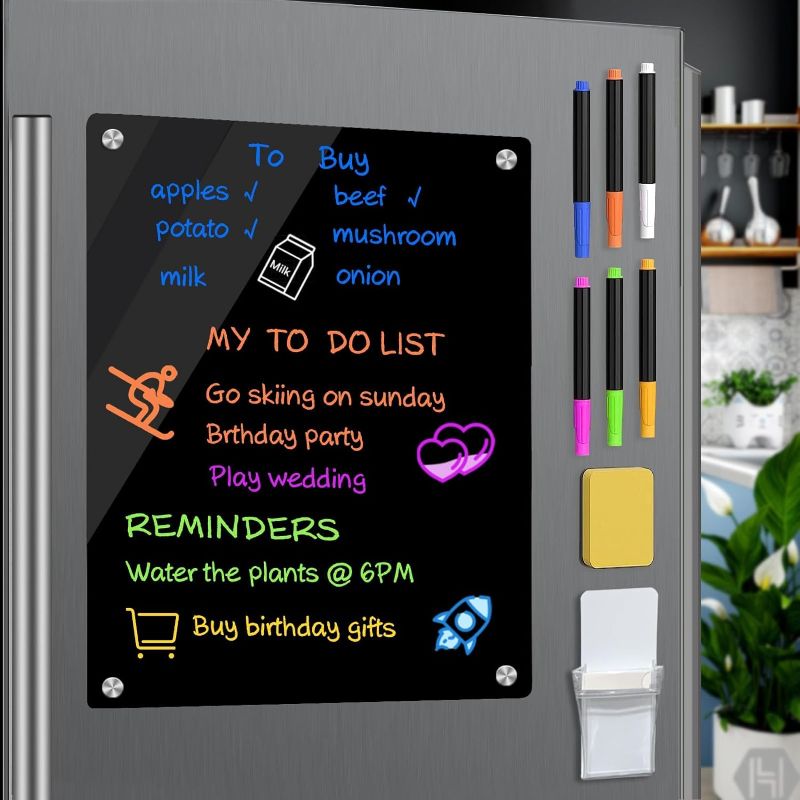 To Buy
apples √ beef √
potato √ mushroom
milk Milk onion
MY TO DO LIST
Go skiing on sunday
Brthday party
Play wedding
REMINDERS
Water the plants @ 6PM
Buy birthday gifts